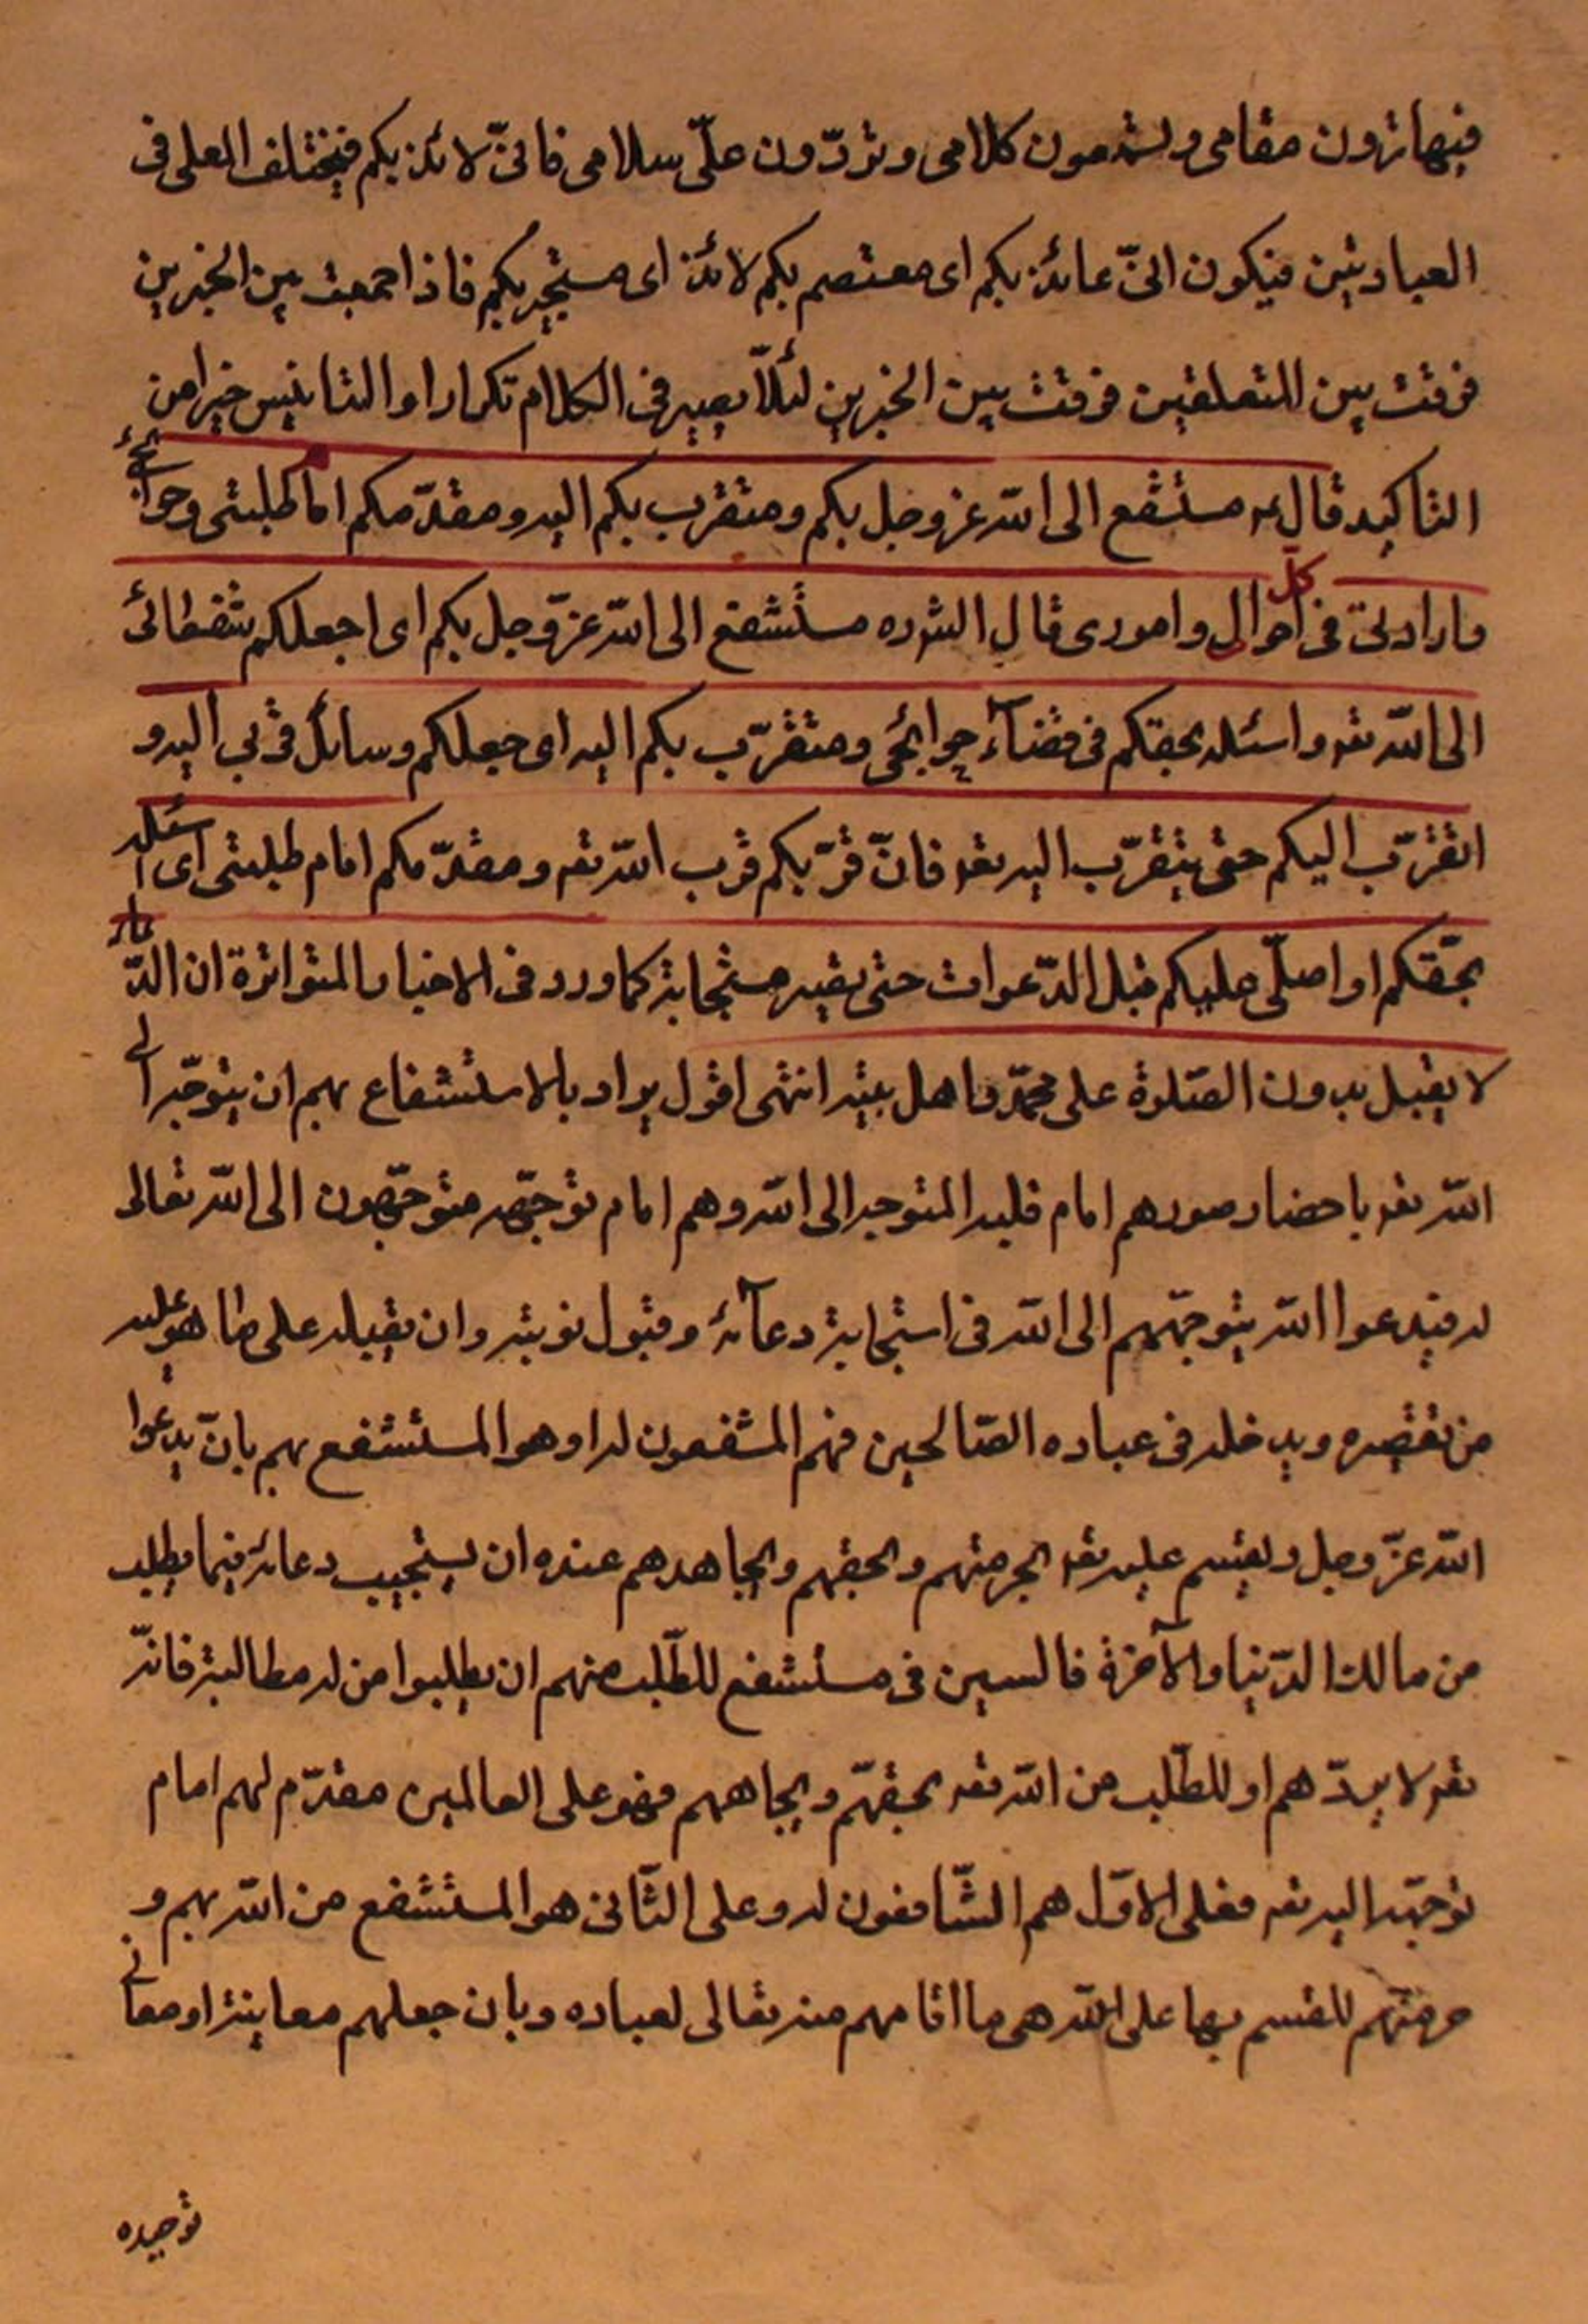 فيها ترون مقامى وتسمعون كلامى وتردّون علّى سلامى فانىّ لائذ بكم فيختلف المعلى فى
العبادتين فيكون انىّ عائذ بكم اى معتصم بكم لائذ اى مستجير بكم فاذا جمعت بين الخبرين
فرقت بين المتعلقين فرقت بين الخبرين لئلّا يصير فى الكلام تكرارا والتاسيس خير من
التاكيد قال ع مستشفع الى اللّه عز وجل بكم ومتقرب بكم اليه ومقدّمكم امام طلبتى وحوائجى
وارادتى فى كل احوالى وامورى قال الشره مستشفع الى اللّه عزّ وجل بكم اى اجعلكم شفعائى
الى اللّه تعه واسئله بحقكم فى قضآء حوائجى ومتقرّب بكم اليه اى جعلكم وسائل قربى اليه و
اتقرّب اليكم حتى يتقرّب اليه تعه فانّ قرّبكم قرب اللّه تعه ومقدّمكم امام طلبتى اى اسئله
بحقّكم او اصلّى عليكم قبل الدّعوات حتى يصير مستجابة كما ورد فى الاخبار المتواترة ان الدّعاء
لا يقبل بدون الصّلوة على محمّد واهل بيته انتهى اقول يراد بالاستشفاع بهم ان يتوجّه الى
اللّه تعه باحضار صورهم امام قلبه المتوجه الى اللّه وهم امام توجّهه متوجّهون الى اللّه تعالى
له فيدعوا اللّه بتوجّههم الى اللّه فى استجابة دعآئه وقبول توبته وان يقبله على ما هو عليه
من تقصيره ويدخله فى عباده الصّالحين فهم المشفعون له او هو المستشفع بهم بانّ يدعوا
اللّه عزّ وجل ويقسم عليه تعه بحرمتهم وبحقهم وبجاههم عنده ان يستجيب دعائه فيما يطلب
من مالك الدّنيا والآخرة فالسين فى مستشفع للطّلب منهم ان يطلبوا من له مطالبة فانّه
تعه لا يردّهم او للطّلب من اللّه تعه بحقّهم وبجاههم فهو على العالمين مقدّم لهم امام
توجّهه اليه تعه فعلى الاوّل هم الشّافعون له وعلى الثّانى هو المستشفع من اللّه بهم و
حرمتهم للقسم بها على اللّه هى ما اقامهم منه تعالى لعباده وبان جعلهم معاينة او معانى
توحيده